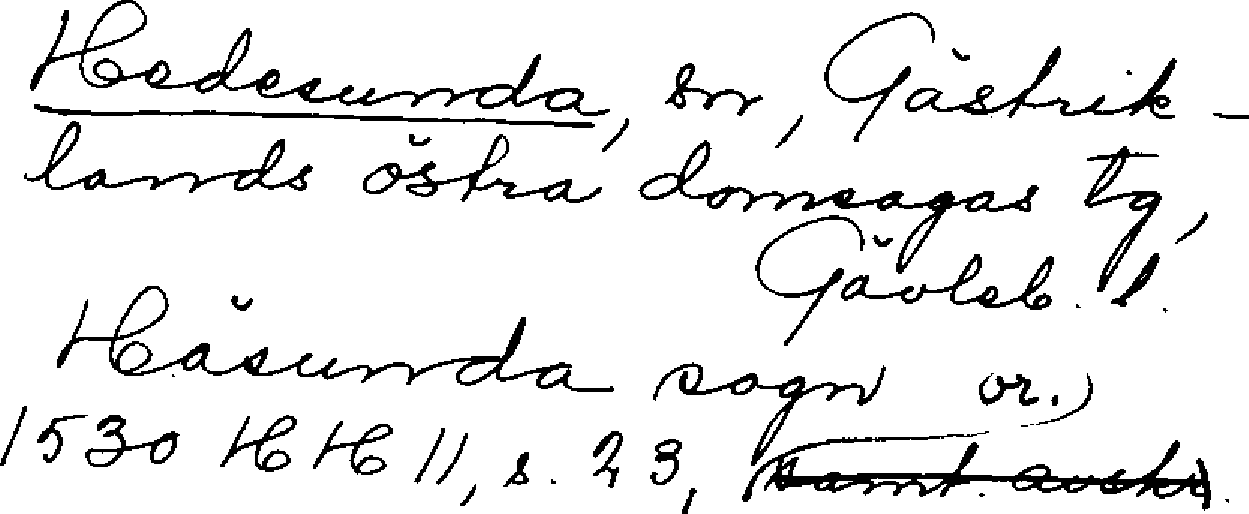 Hedesunda, sn, Gästrik-
lands östra domsagas tg,
Gävleb. l.
Häsunda sogn or.)
1530 HH II, s. 23, samt. avskr.